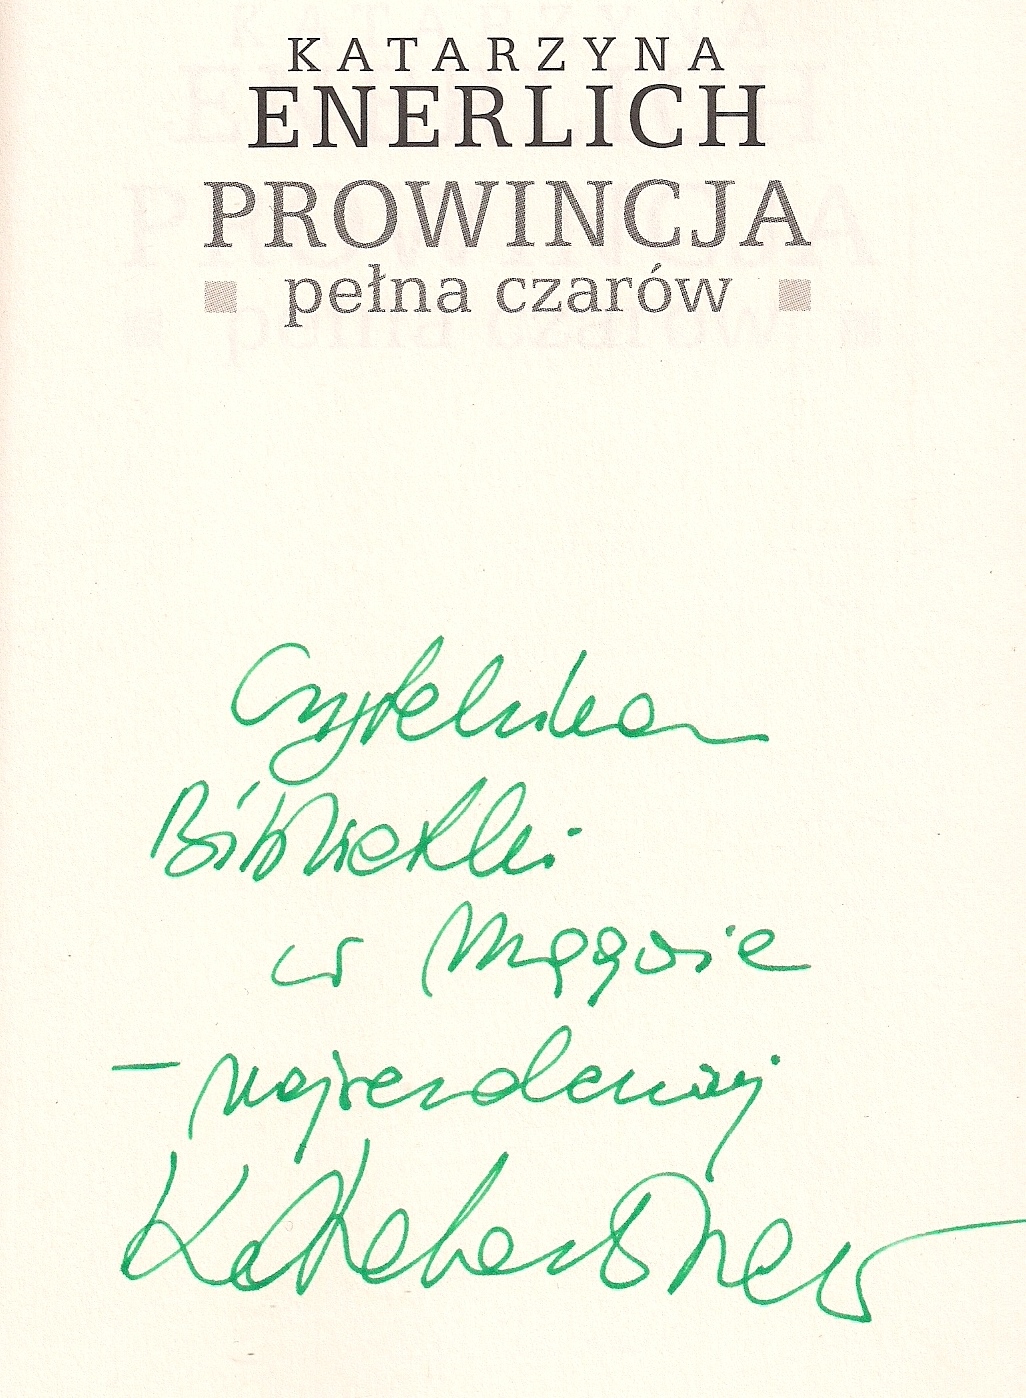 KATARZYNA
ENERLICH
PROWINCJA
pełna czarów
Czytelnikom
Biblioteki
w
- najserdeczniej